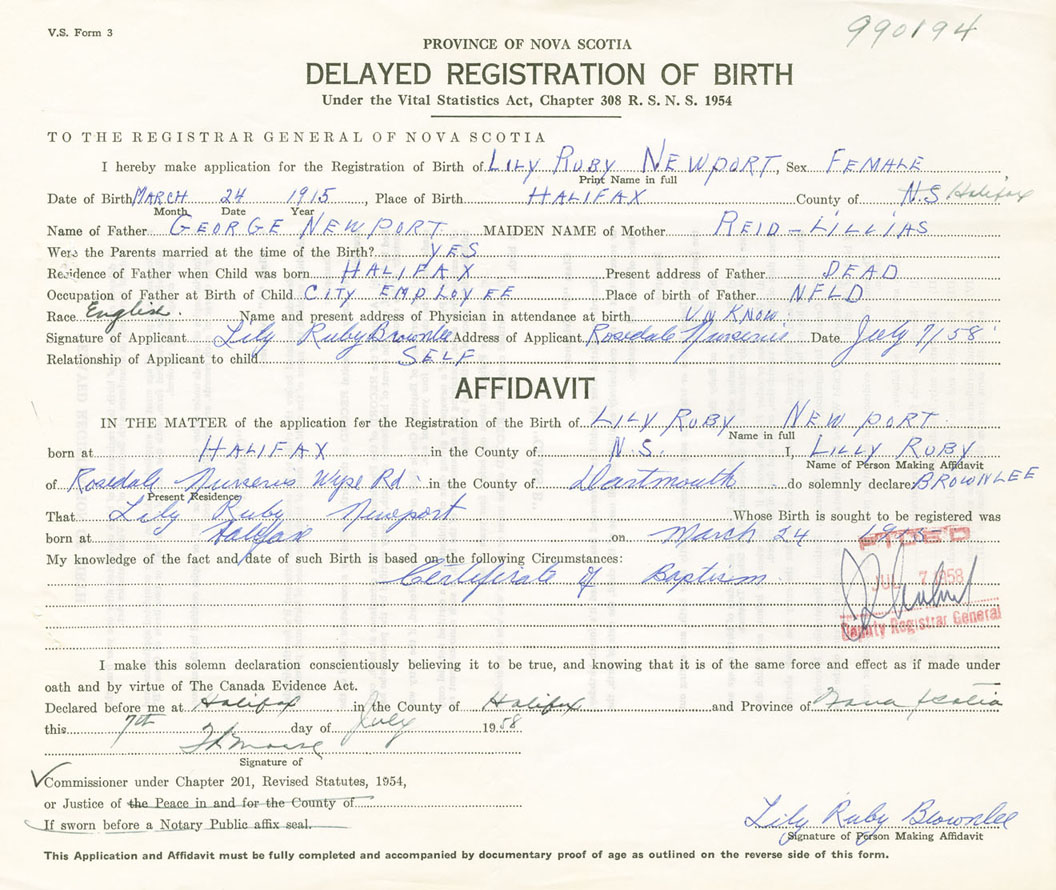 V.S. Form 3
990194
PROVINCE OF NOVA SCOTIA
DELAYED REGISTRATION OF BIRTH
Under the Vital Statistics Act, Chapter 308 R. S. N. S. 1954
TO THE REGISTRAR GENERAL OF NOVA SCOTIA
I hereby make application for the Registration of Birth of LILY RUBY NEWPORT, Sex FEMALE
Print Name in full
Date of Birth MARCH 24 1915, Place of Birth HALIFAX County of N.S Halifax
Month Date Year
Name of Father GEORGE NEWPORT MAIDEN NAME of Mother REID-LILLIAS
Were the Parents married at the time of the Birth? YES
Residence of Father when Child was born HALIFAX Present address of Father DEAD
Occupation of Father at Birth of Child CITY EMPLOYEE Place of birth of Father NFLD
Race English. Name and present address of Physician in attendance at birth UNKNOW
Signature of Applicant Lily Ruby Brownlee Address of Applicant Rosedale Nurseries Date July 7/58
Relationship of Applicant to child SELF
AFFIDAVIT
IN THE MATTER of the application for the Registration of the Birth of LILY RUBY NEWPORT
Name in full
born at HALIFAX in the County of N.S. I, LILLY RUBY
Name of Person Making Affidavit
of Rosedale Nurseries Wyse Rd. in the County of Dartmouth do solemnly declare BROWNLEE
Present Residence
That Lily Ruby Newport Whose Birth is sought to be registered was
born at Halifax on March 24 1915
My knowledge of the fact and date of such Birth is based on the following Circumstances:
Certificate of Baptism
JUL 7 1958
Deputy Registrar General
I make this solemn declaration conscientiously believing it to be true, and knowing that it is of the same force and effect as if made under
oath and by virtue of The Canada Evidence Act.
Declared before me at Halifax in the County of Halifax and Province of Nova Scotia
this 7th day of July 1958
Signature of
Commissioner under Chapter 201, Revised Statutes, 1954,
or Justice of the Peace in and for the County of
If sworn before a Notary Public affix seal.
Lily Ruby Brownlee
Signature of Person Making Affidavit
This Application and Affidavit must be fully completed and accompanied by documentary proof of age as outlined on the reverse side of this form.